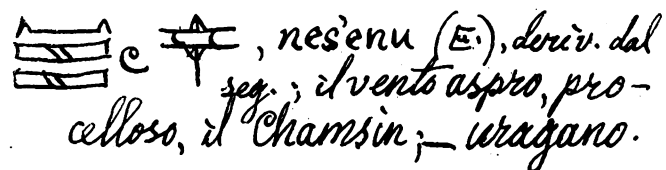 , nes'enu (E.), deriv. dal
seg.; il vento aspro, pro-
celloso, il Chamsin; — uragano.